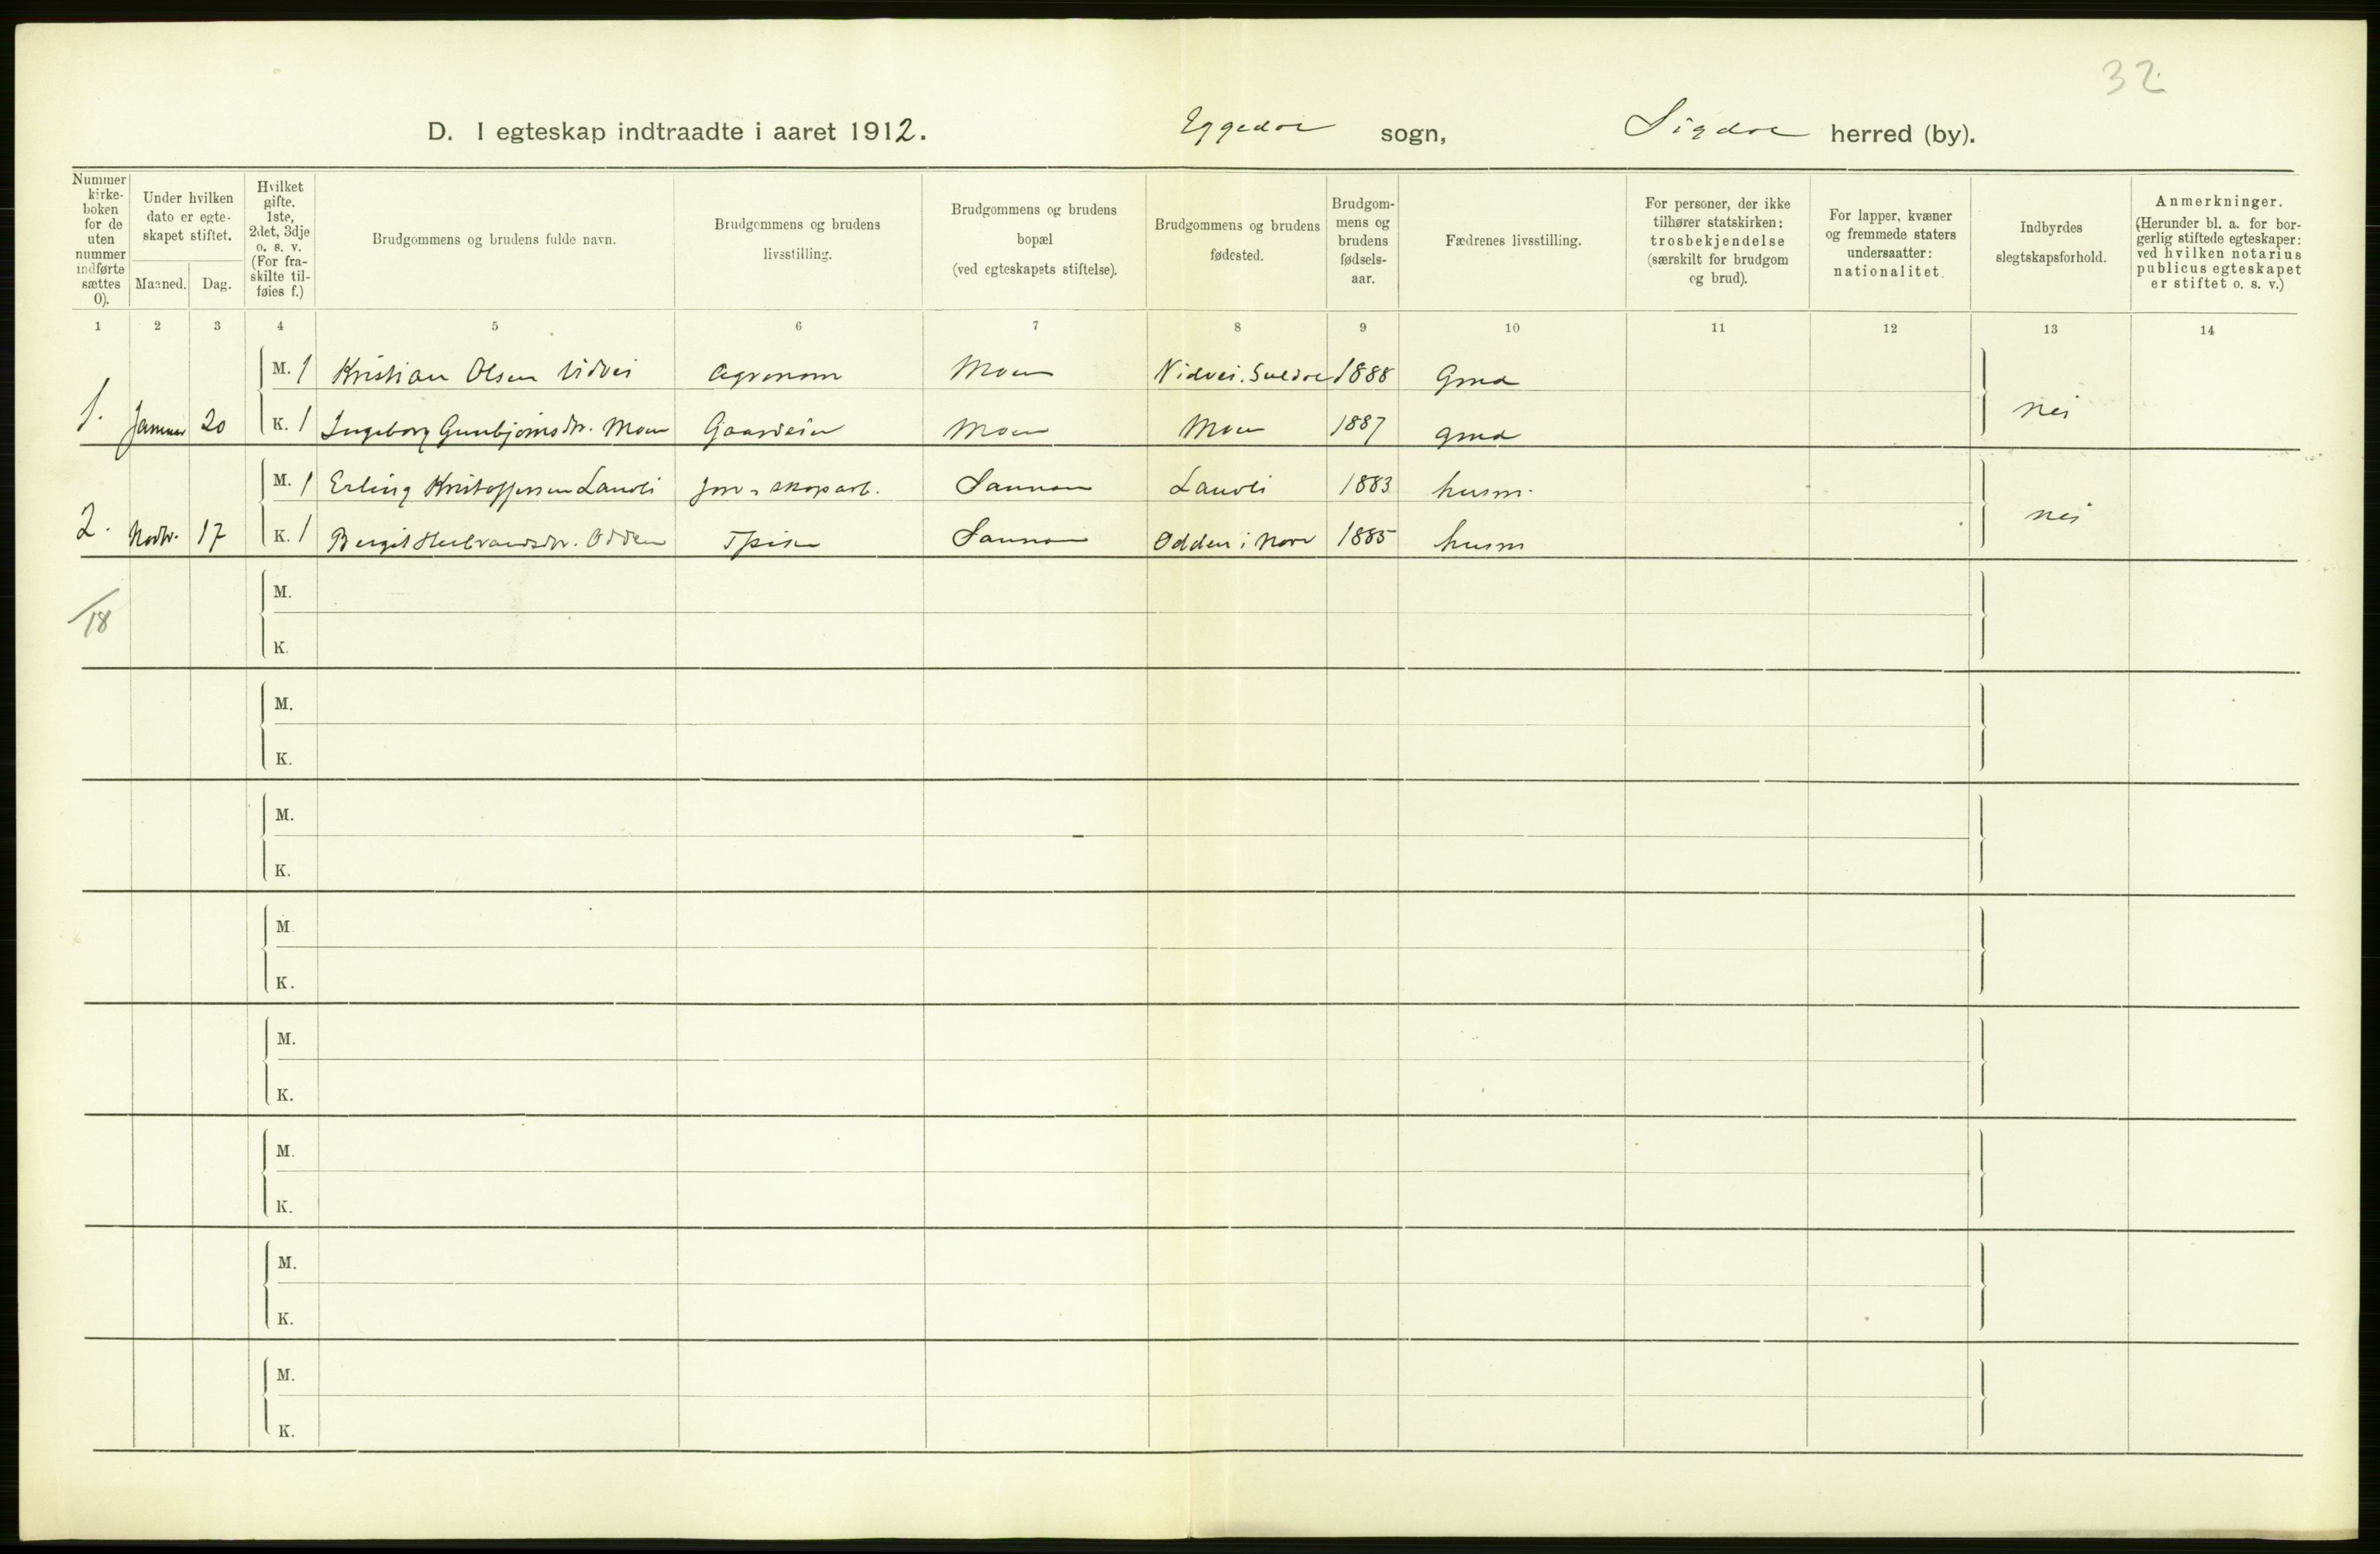 32
D. I egteskap indtraadte i aaret 1912. Eggedal sogn, Sigdal herred (by).
Nummer kirkeboken for de uten nummer indførte sættes 0).
Under hvilken dato er egteskapet stiftet.
Maaned. Dag.
Hvilket gifte. 1ste, 2det, 3dje o. s. v. (For fraskilte tilføies f.)
Brudgommens og brudens fulde navn.
Brudgommens og brudens livsstilling.
Brudgommens og brudens bopæl (ved egteskapets stiftelse).
Brudgommens og brudens fødested.
Brudgommens og brudens fødselsaar.
Fædrenes livsstilling.
For personer, der ikke tilhører statskirken: trosbekjendelse (særskilt for brudgom og brud).
For lapper, kvæner og fremmede staters undersaatter: nationalitet.
Indbyrdes slegtskapsforhold.
Anmerkninger. (Herunder bl. a. for borgerlig stiftede egteskaper: ved hvilken notarius publicus egteskapet er stiftet o. s. v.)
1 2 3 4 5 6 7 8 9 10 11 12 13 14
M. 1 Kristian Olsen Nidvei agronom Moen Nidvei. 1888 Gmd
1. Januar 20 K. 1 Ingeborg Gunbjørnsdtr. Moen Gaardeier Moen Moen 1887 gmd nei
M. 1 Erling Kristoffersen Landli jord- skogarb. Sannan Landli 1883 husm.
2. Novbr. 17 K. 1 Bergit Herbrandsdtr. Odden Tpike Sannan Odden i Nore 1885 husm nei
M.
18
K.
M.
K.
M.
K.
M.
K.
M.
K.
M.
K.
M.
K.
M.
K.